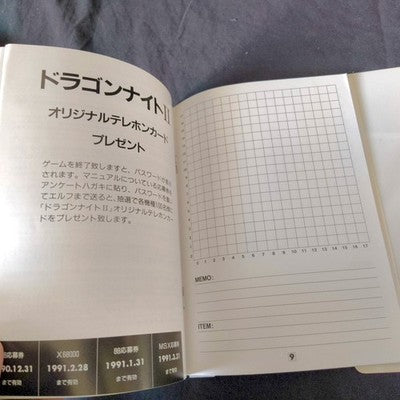 ドラゴンナイトⅡ
オリジナルテレホンカード
プレゼント
ゲームを終了致しますと、パスワードが表示
されます。マニュアルについている応募券を
アンケートハガキに貼り、パスワードを書い
てエルフまで送ると、抽選で各機種100名様に
「ドラゴンナイトⅡ」オリジナルテレホンカー
ドをプレゼント致します。
応募券
90.12.31
まで有効
X68000
1991.2.28
まで有効
88応募券
1991.1.31
まで有効
MSX応募券
まで有効
0 1 2 3 4 5 6 7 8 9 10 11 12 13 14 15 16 17
MEMO:
ITEM:
9